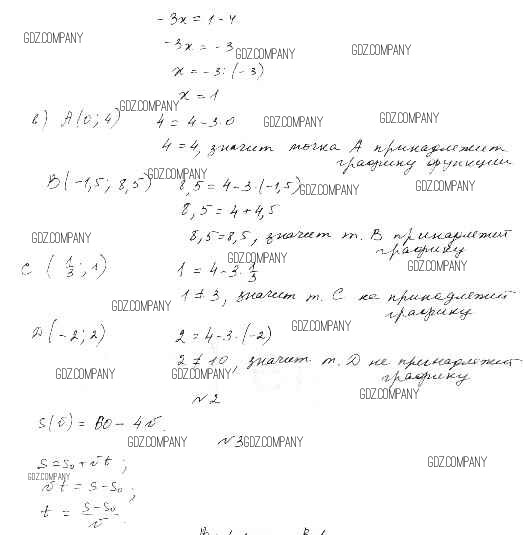 -3x = 1-4
GDZ.COMPANY
-3x = -3
GDZ.COMPANY
GDZ.COMPANY
x = -3:(-3)
x = 1
GDZ.COMPANY
в) A(0; 4) 4 = 4-3·0
GDZ.COMPANY
GDZ.COMPANY
4 = 4, значит точка A принадлежит
графику функции
GDZ.COMPANY
B(-1,5; 8,5) 8,5 = 4-3·(-1,5)
GDZ.COMPANY
GDZ.COMPANY
8,5 = 4+4,5
GDZ.COMPANY
8,5=8,5, значит т. B принадлежит
графику
GDZ.COMPANY
GDZ.COMPANY
C (1/3; 1) 1 = 4-3·1/3
1 ≠ 3, значит т. C не принадлежит
графику
GDZ.COMPANY
GDZ.COMPANY
D(-2; 2) 2 = 4-3·(-2)
2 ≠ 10, значит т. D не принадлежит
графику
GDZ.COMPANY
GDZ.COMPANY
GDZ.COMPANY
№2
S(t) = 80 - 4t
GDZ.COMPANY
№3
GDZ.COMPANY
GDZ.COMPANY
S = S₀ + vt;
GDZ.COMPANY
vt = S-S₀;
t = S-S₀/v